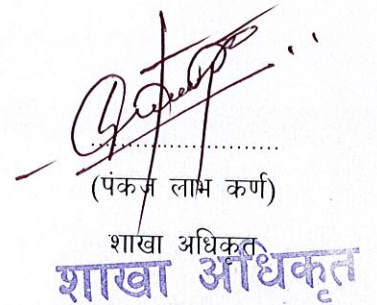 (पंकज लाभ कर्ण)
शाखा अधिकृत
शाखा अधिकृत